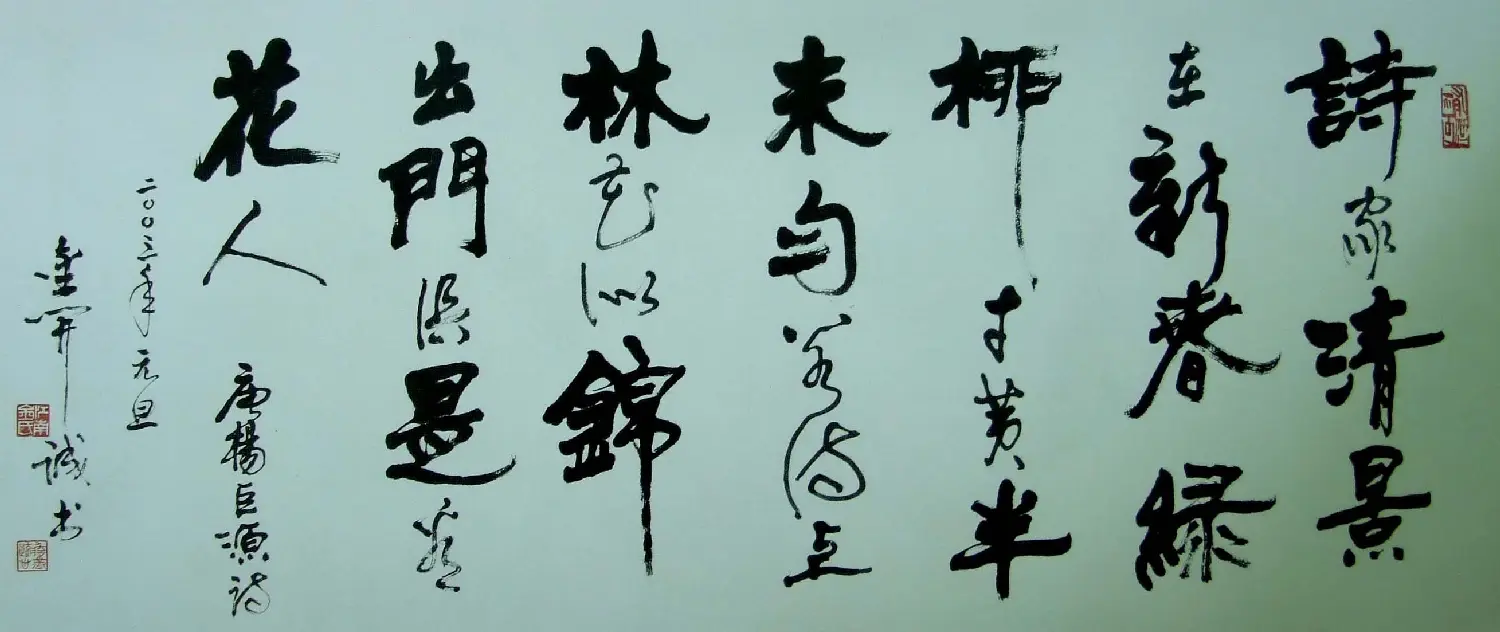 詩家清景
在新春緑
柳才黄半
未匀若待上
林花似錦
出門俱是看
花人 唐楊巨源詩
二〇〇三年元旦
金開誠书
江南金氏